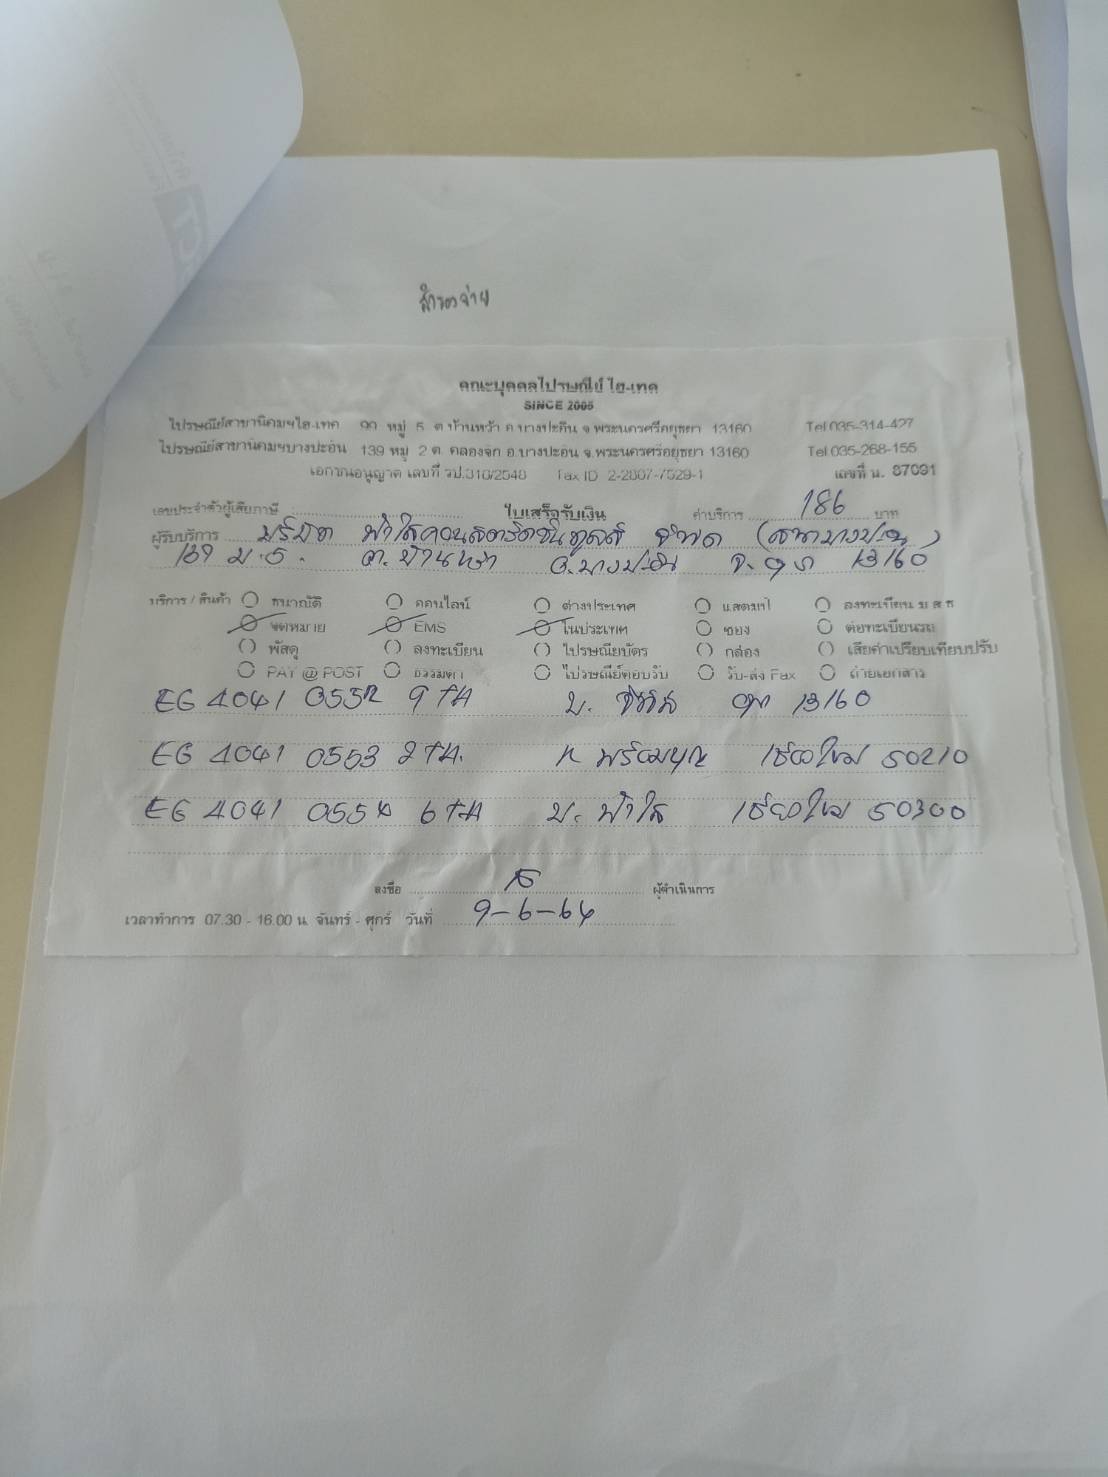 สำรองจ่าย
คณะบุคคลไปรษณีย์ ไฮ-เทค
SINCE 2005
ไปรษณีย์สาขานิคมฯไฮ-เทค 99 หมู่ 5 ต.บ้านหว้า อ.บางปะอิน จ.พระนครศรีอยุธยา 13160 Tel.035-314-427
ไปรษณีย์สาขานิคมฯบางปะอิน 139 หมู่ 2 ต. คลองจิก อ.บางปะอิน จ.พระนครศรีอยุธยา 13160 Tel.035-268-155
เอกชนอนุญาต เลขที่ รป.310/2548 Tax ID 2-2807-7529-1 เลขที่ น. 87091
เลขประจำตัวผู้เสียภาษี ใบเสร็จรับเงิน ค่าบริการ 186 บาท
ผู้รับบริการ บริษัท ฟ้าใสคอนสตรัคชั่นทูลส์ จำกัด (สาขาบางปะอิน)
139 ม.5. ต.บ้านหว้า อ.บางปะอิน จ.อยุธยา 13160
บริการ / สินค้า ธนาณัติ ออนไลน์ ต่างประเทศ แสตมป์ ลงทะเบียน บ ส ท
จดหมาย EMS ในประเทศ ซอง ต่อทะเบียนรถ
พัสดุ ลงทะเบียน ไปรษณียบัตร กล่อง เสียค่าเปรียบเทียบปรับ
PAY @ POST ธรรมดา ไปรษณีย์ตอบรับ รับ-ส่ง Fax ถ่ายเอกสาร
EG 4041 0552 9 TH บ. อย 13160
EG 4041 0553 2 TH. K พร้อมบุญ เชียงใหม่ 50210
EG 4041 0554 6 TH บ. ฟ้าใส เชียงใหม่ 50300
ลงชื่อ ผู้ดำเนินการ
เวลาทำการ 07.30 - 16.00 น. จันทร์ - ศุกร์ วันที่ 9-6-64